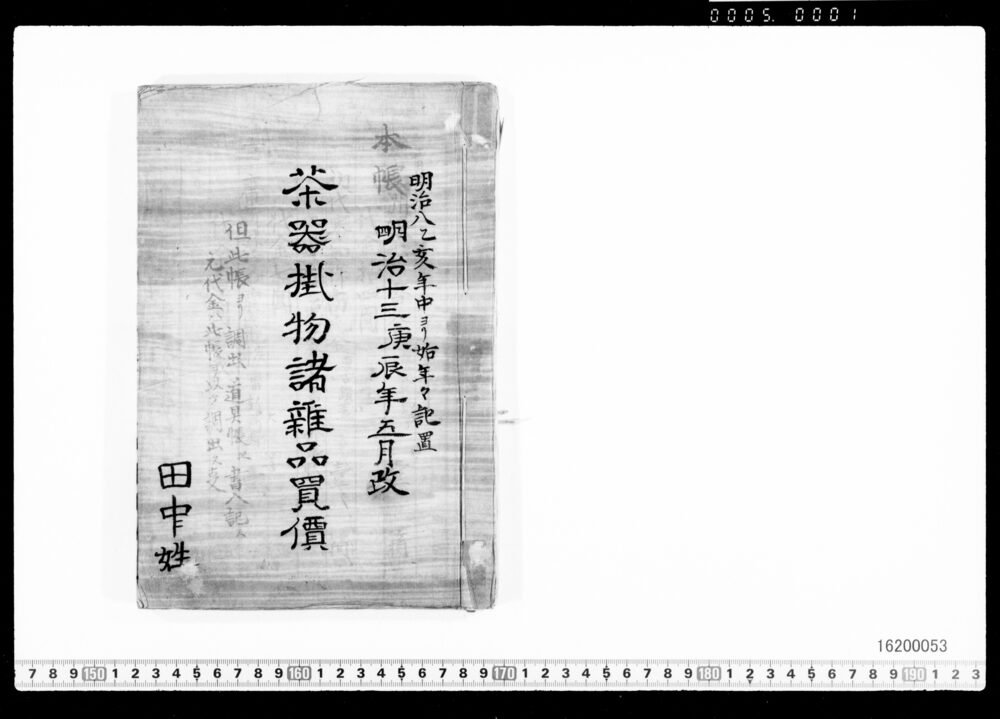 0005. 0001
本帳
明治八乙亥年中ヨリ始年々記置
明治十三庚辰年五月改
茶器掛物諸雜品買價
但此帳ヨリ調出道具帳ニ書入記ス
元代金ハ此帳
調出ス
田中姓
16200053
7 8 9 150 1 2 3 4 5 6 7 8 9 160 1 2 3 4 5 6 7 8 9 170 1 2 3 4 5 6 7 8 9 180 1 2 3 4 5 6 7 8 9 190 1 2 3